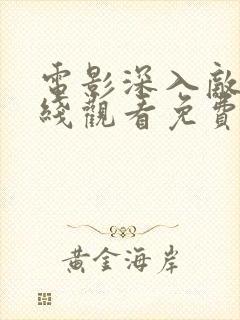 電影深入敵
綫觀看免費
黃金海岸